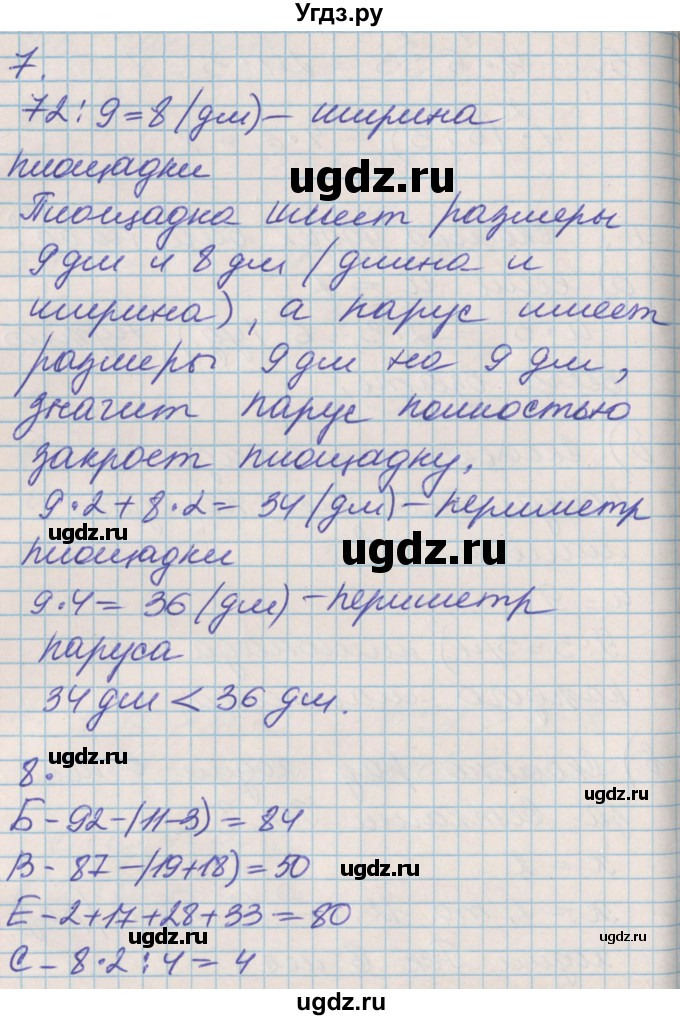 Угдз.ру
7.
72 : 9 = 8 (дм) – ширина
площадки
ugdz.ru
Площадка имеет размеры
9 дм и 8 дм (длина и
ширина), а парус имеет
размеры 9 дм на 9 дм,
значит парус полностью
закроет площадку.
9·2 + 8·2 = 34 (дм) – периметр
ugdz.ru
площадки
ugdz.ru
9·4 = 36 (дм) – периметр
паруса
34 дм < 36 дм.
ugdz.ru
8.
ugdz.ru
Б – 92 – (11 – 3) = 84
В – 87 – (19 + 18) = 50
ugdz.ru
Е – 2 + 17 + 28 + 33 = 80
ugdz.ru
С – 8·2 : 4 = 4
ugdz.ru
ugdz.ru